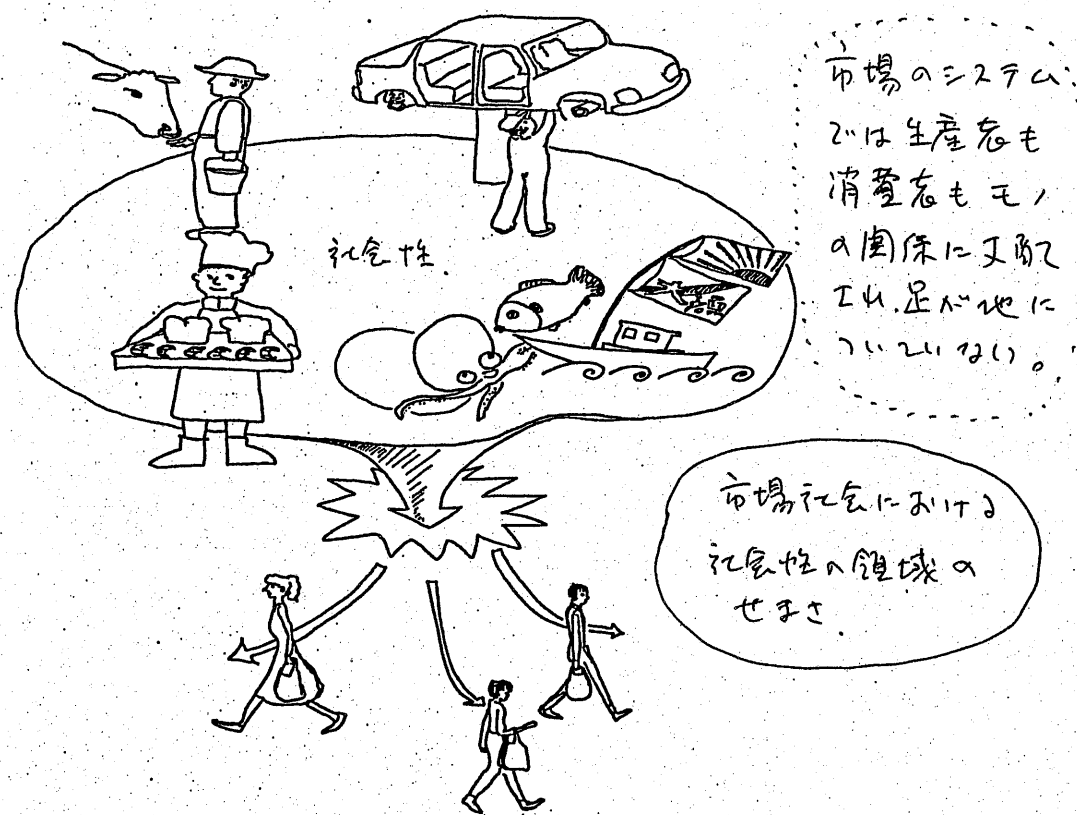 市場のシステム
では生産者も
消費者もモノ
の関係に支配
され、足が地に
ついていない。
社会性
大漁
市場社会における
社会性の領域の
せまさ